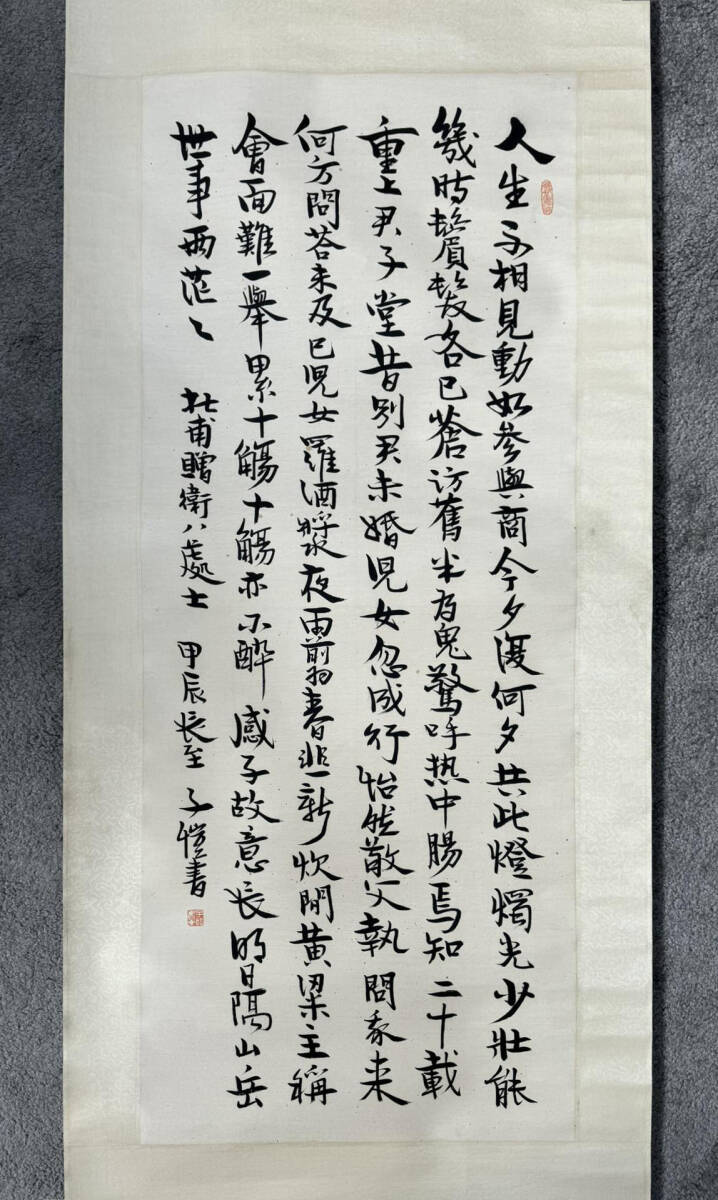 人生不相見動如參與商今夕復何夕共此燈燭光少壯能
幾時鬢髮各已蒼訪舊半為鬼驚呼热中腸焉知二十載
重上君子堂昔別君未婚兒女忽成行怡然敬父執問我来
何方問答未及已兒女羅酒漿夜雨翦春韭新炊間黄粱主稱
會面難一舉累十觴十觴亦不醉感子故意長明日隔山岳
世事兩茫々
杜甫贈衛八處士
甲辰長至子愷書